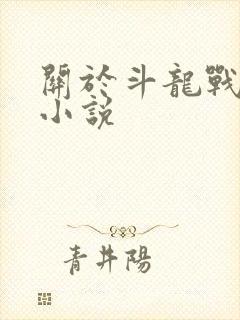 關於斗龍戰
小說
青井陽